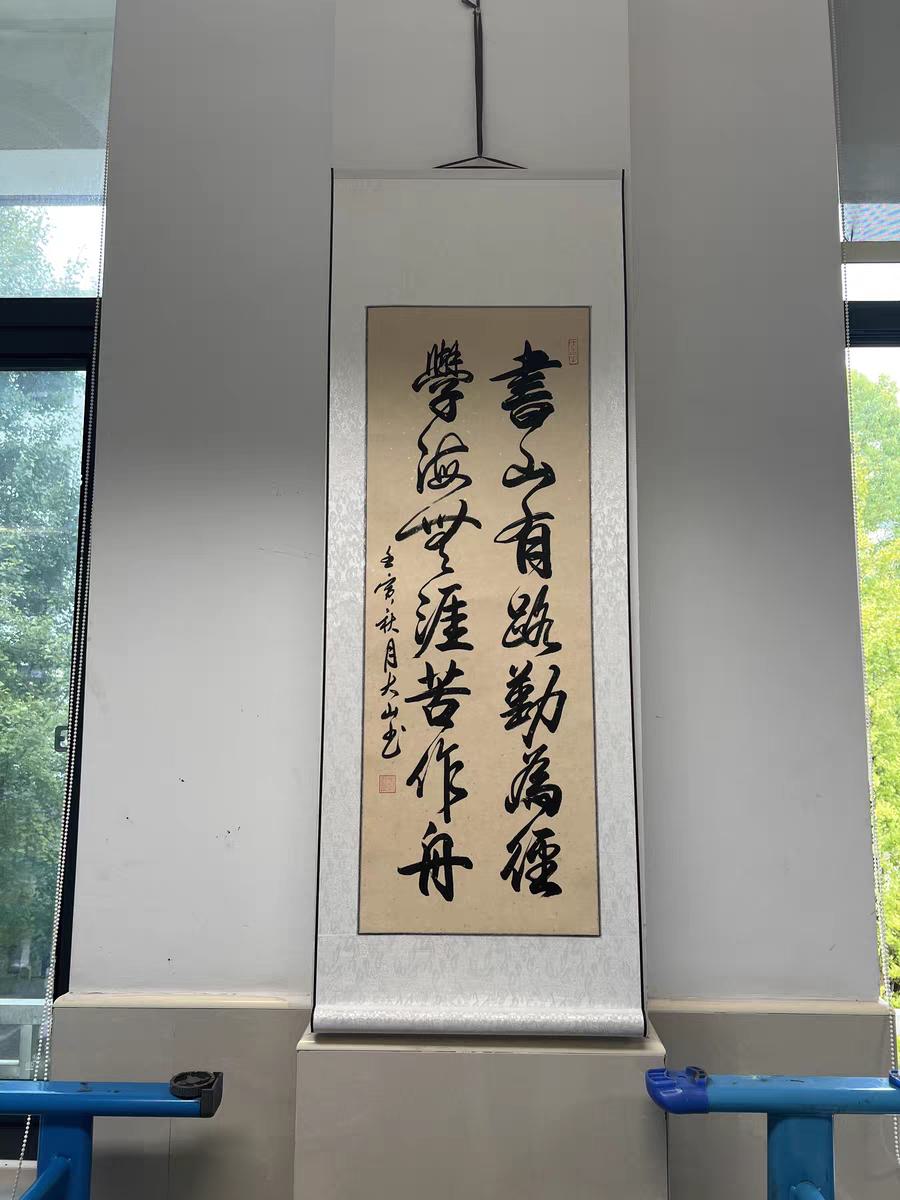 書山有路勤為徑
學海無涯苦作舟
壬寅秋月大山书